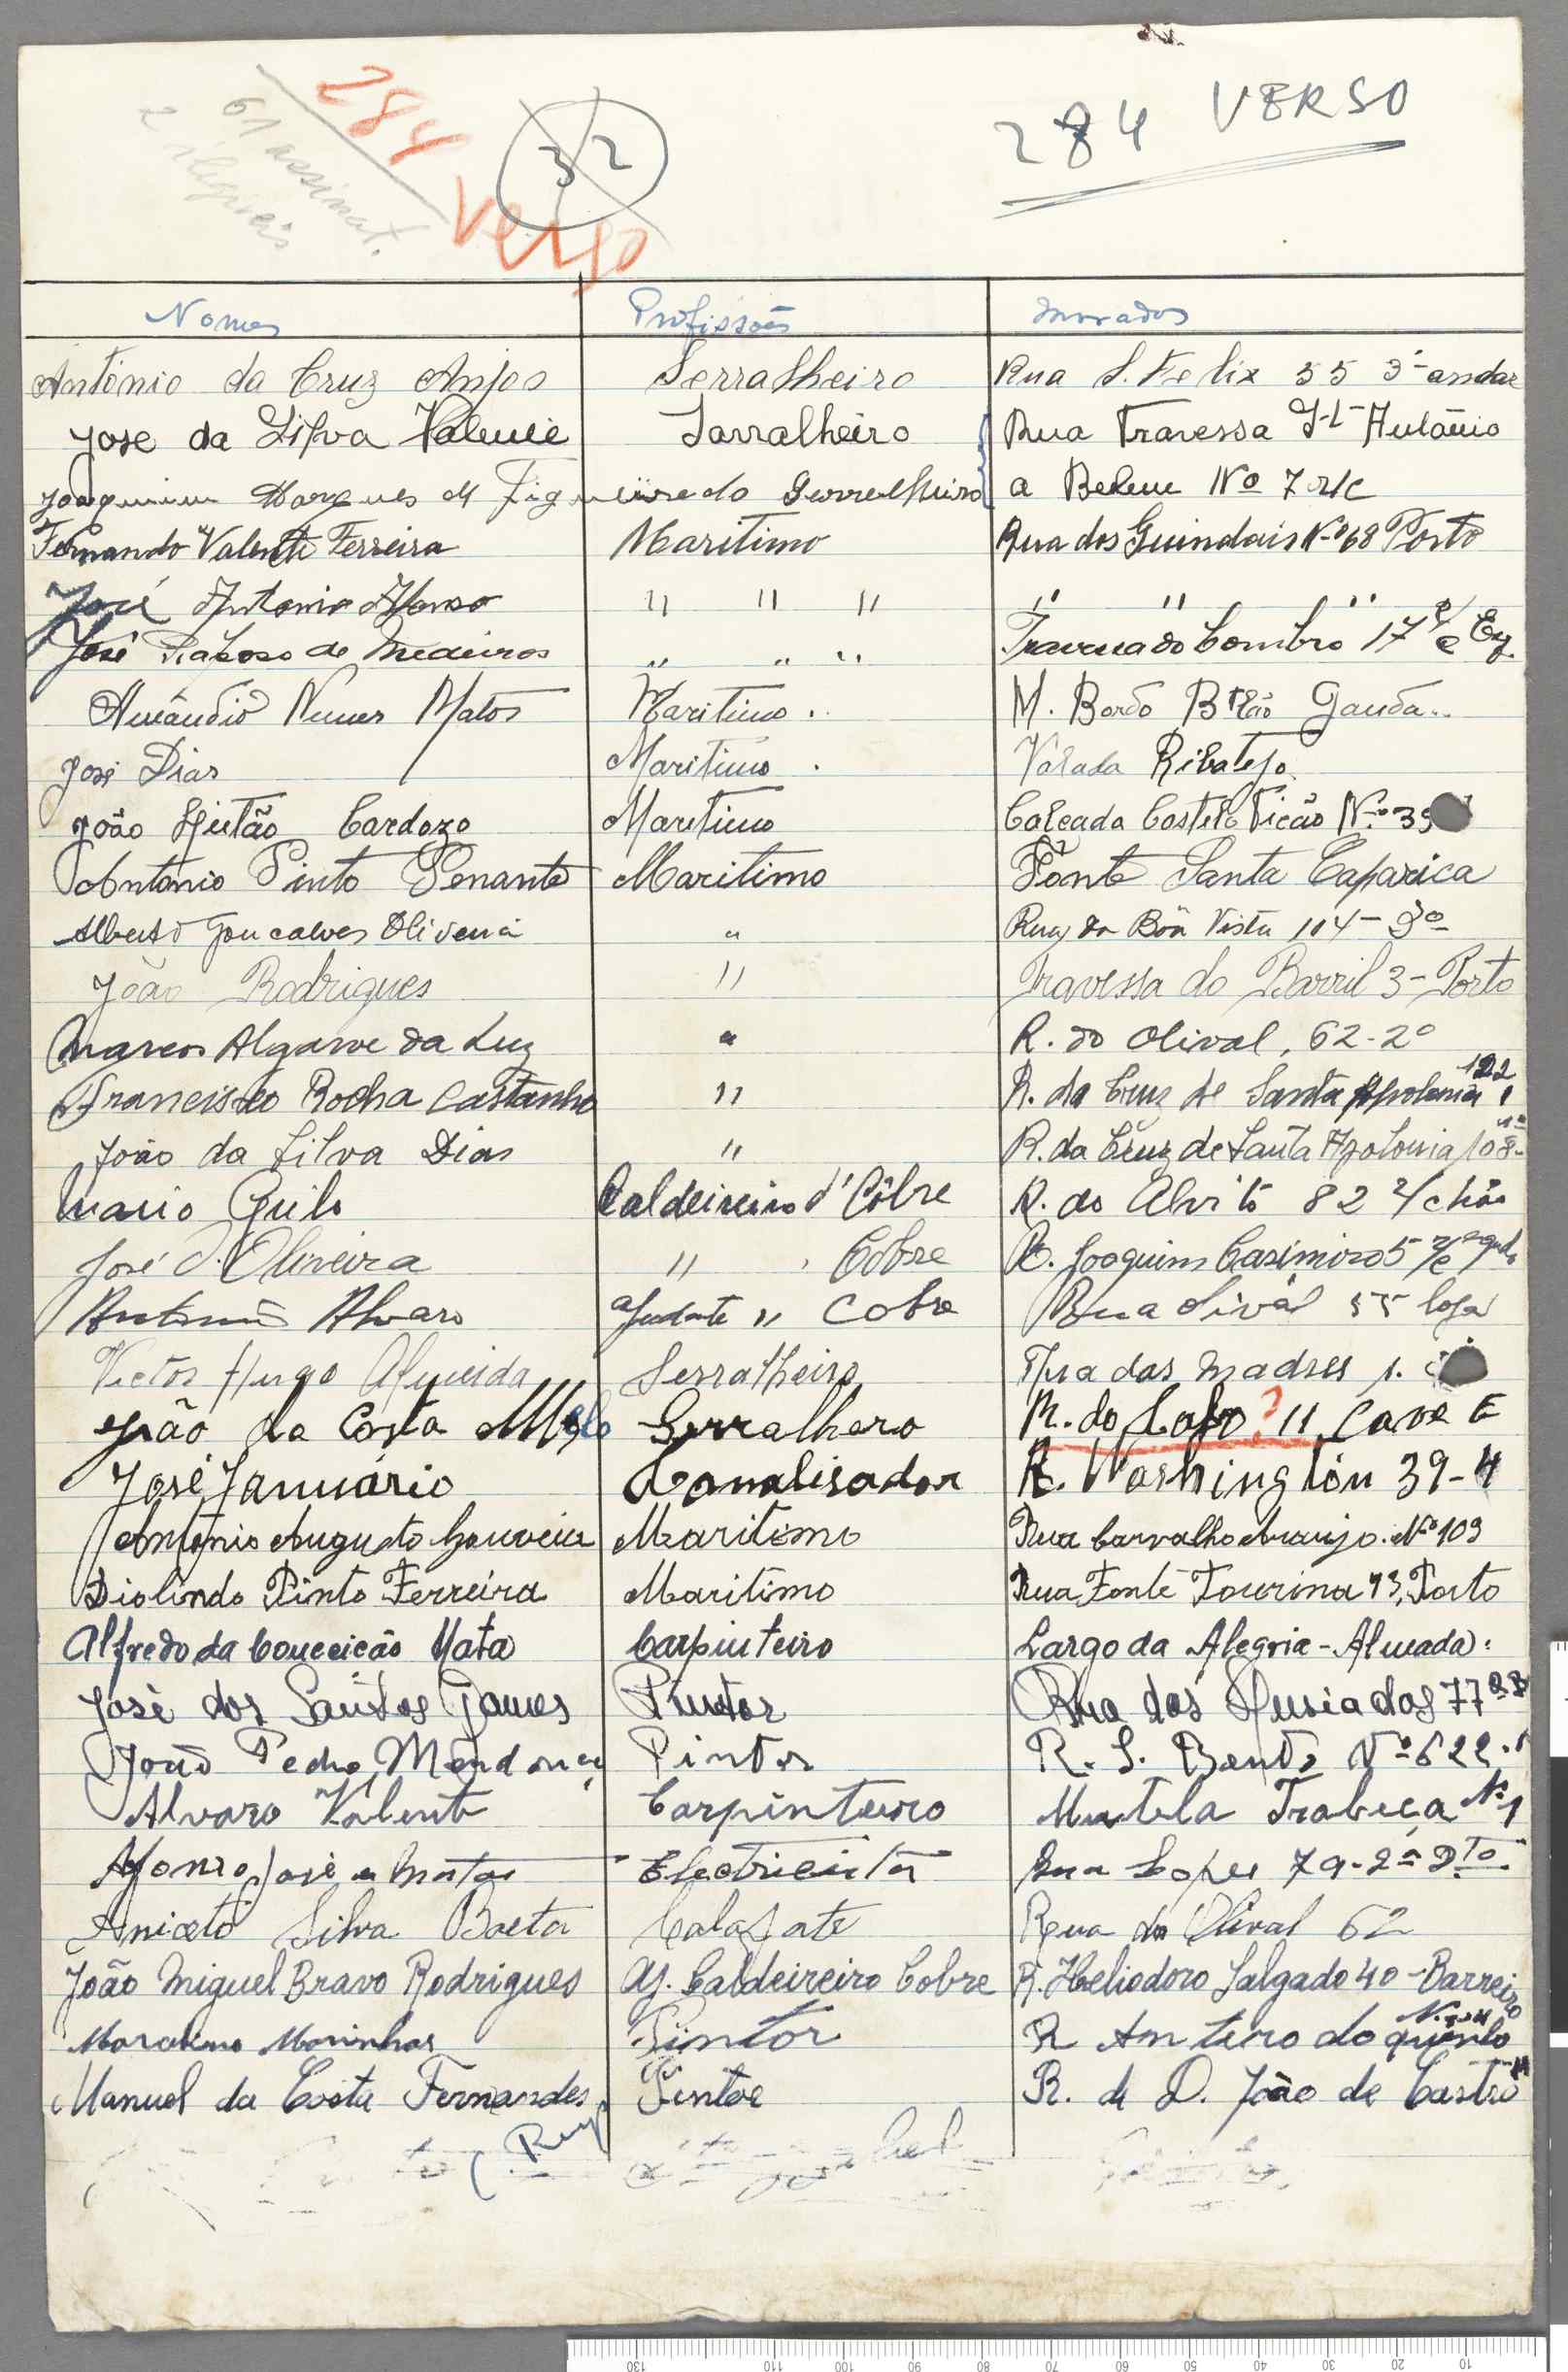 284 VERSO
284
verso
32
61 assinat.
2 ilegiveis
Nomes Profissões Moradas
António da Cruz Anjos Serralheiro Rua S. Felix 55 3º andar
Jose da Silva Valente Sarralheiro Rua Travessa Stº António
Joaquim Marques de Figueiredo Serralheiro a Belem Nº 7 r/c
Fernando Valente Ferreira Maritimo Rua dos Guindais Nº 68 Porto
José Antonio Afonso " " " " " "
José Raposo de Medeiros " " " Travessa do Combro 17 r/c Esq.
Amândio Nunes Matos Maritimo. M. Bordo Gauda..
José Dias Maritimo. Valada Ribatejo.
João Leitão Cardozo Maritimo Calcada Costelo Picão Nº 39
António Pinto Penante Maritimo Fonte Santa Caparica
Alberto Goncalves Oliveira " Rua da Bôa Vista 104-3º
João Rodrigues " Travessa do Barril 3-Porto
Marcos Algarve da Luz " R. do Olival, 62-2º
Francisco Rocha Castanho " R. da Cruz de Santa Apolonia 122
João da Silva Dias " R. da Cruz de Santa Apolonia 108-1º
Mario Grilo Caldeireiro d' Côbre R. do Alvito 82 r/chão
José d'Oliveira " Cobre R. Joaquim Casimiro 5 r/c
António Alvaro ajudante " Cobre Rua Olival 55 loja
Victor Hugo Almeida Serralheiro Rua das Madres 1.
João da Costa Melo Serralhero R. do Lobo? 11 Cave E
José Januário Canalisador R. Washington 39-4
António Augusto Gouveia Maritimo Rua Carvalho Araujo. Nº 109
Diolindo Pinto Ferreira Maritimo Rua Fonte Taurina 93, Porto
Alfredo da Conceicão Mata Carpinteiro Largo da Alegria-Almada:
José dos Santos Gomes Pintor Rua dos Lusiadas 77
João Pedro Mendonça Pintor R. S. Bento Nº 622.
Alvaro Valente Carpinteiro Mutela Trabeça Nº 1
Afonso José de Matos Electricista Rua Lopes 79-2º Dto.
Aniceto Silva Baeta Calafate Rua do Olival 62
João Miguel Bravo Rodrigues Aj. Caldeireiro Cobre R. Heliodoro Salgado 40-Barreiro
Marinhas Pintor R Antero do quental
Manuel da Costa Fernandes Pintor R. de D. João de Castro